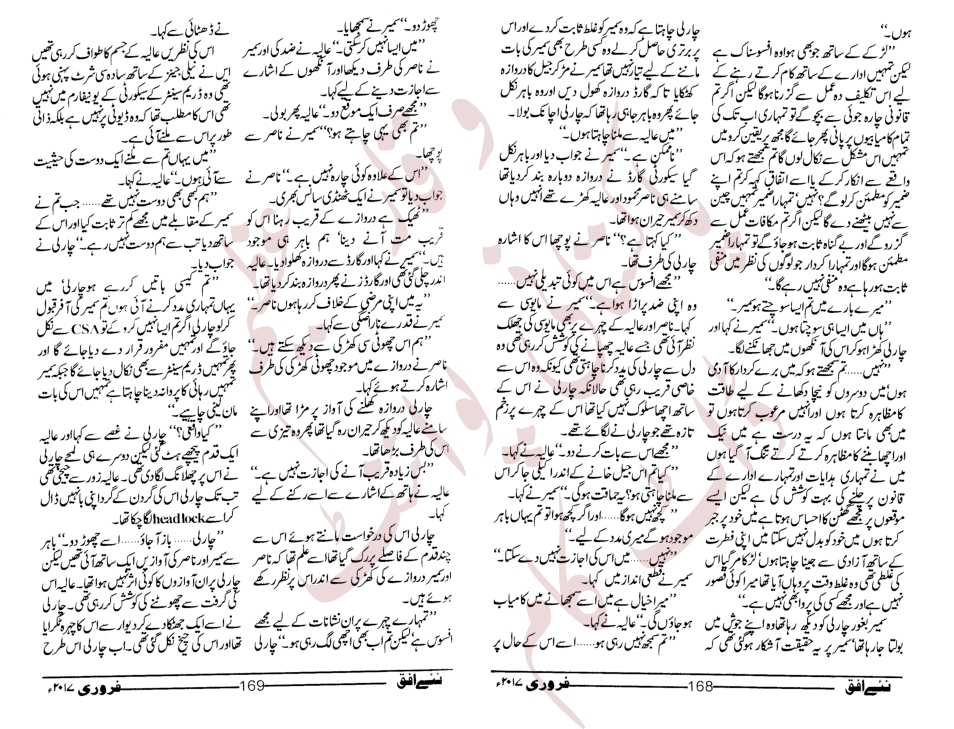 ہوں۔‘‘
’’لڑکے کے ساتھ جو بھی ہوا وہ افسوسناک ہے
لیکن تمہیں ادارے کے ساتھ کام کرتے رہنے کے
لیے اس تکلیف دہ عمل سے گزرنا ہوگا لیکن اگر تم
قانونی چارہ جوئی سے بچو گے تو تمہاری اب تک کی
تمام کامیابیوں پر پانی پھر جائے گا مجھ پر یقین کرو میں
تمہیں اس مشکل سے نکال لوں گا تم سمجھتے ہو کہ اس
واقعے سے انکار کر کے یا اسے اتفاق کہہ کر تم اپنے
ضمیر کو مطمئن کر لو گے؟ نہیں‘ تمہارا ضمیر تمہیں چین
سے نہیں بیٹھنے دے گا لیکن اگر تم مکافات عمل سے
گزرو گے اور بے گناہ ثابت ہو جاؤ گے تو تمہارا ضمیر
مطمئن ہوگا اور تمہارا کردار جو لوگوں کی نظر میں منفی
ثابت ہورہا ہے وہ منفی نہیں رہے گا۔‘‘
’’میرے بارے میں تم ایسا سوچتے ہو سمیر۔‘‘
’’ہاں میں ایسا ہی سوچتا ہوں۔‘‘ سمیر نے کہا اور
چارلی کھڑا ہو کر اس کی آنکھوں میں جھانکنے لگا۔
’’نہیں..... تم سمجھتے ہو کہ میں برے کردار کا آدمی
ہوں میں دوسروں کو نیچا دکھانے کے لیے طاقت
کا مظاہرہ کرتا ہوں اور انہیں مرعوب کرتا ہوں تو
میں بھی مانتا ہوں کہ یہ درست ہے میں نیک
اور اچھا بننے کا مظاہرہ کرتے کرتے تنگ آ گیا ہوں
میں نے تمہاری ہدایات اور تمہارے ادارے کے
قانون پر چلنے کی بہت کوشش کی ہے لیکن ایسے
موقعوں پر مجھے گھٹن کا احساس ہوتا ہے میں خود پر جبر
کرتا ہوں میں خود کو بدل نہیں سکتا میں اپنی فطرت
کے ساتھ آزادی سے جینا چاہتا ہوں‘ لڑکا مرگیا اس
کی غلطی تھی وہ غلط وقت پر وہاں آیا تھا میرا کوئی قصور
نہیں ہے اور مجھے کسی کی پروا بھی نہیں ہے۔‘‘
سمیر بغور چارلی کو دیکھ رہا تھا وہ اپنے جوش میں
بولتا جارہا تھا‘ سمیر پر یہ حقیقت آشکار ہوگئی تھی کہ
چارلی چاہتا ہے کہ وہ سمیر کو غلط ثابت کردے اور اس
پر برتری حاصل کرلے وہ کسی طرح بھی سمیر کی بات
ماننے کے لیے تیار نہیں تھا سمیر نے مڑ کر جیل کا دروازہ
کھٹکایا تاکہ گارڈ دروازہ کھول دیں اور وہ باہر نکل
جائے پھر وہ باہر جا ہی رہا تھا کہ چارلی اچانک بولا۔
’’میں عالیہ سے ملنا چاہتا ہوں۔‘‘
’’ناممکن ہے۔‘‘ سمیر نے جواب دیا اور باہر نکل
گیا سیکورٹی گارڈ نے دروازہ دوبارہ بند کردیا تھا
سامنے ہی ناصر محمود اور عالیہ کھڑے تھے انہیں وہاں
دیکھ کر سمیر حیران ہوا تھا۔
’’کیا کہتا ہے؟‘‘ ناصر نے پوچھا اس کا اشارہ
چارلی کی طرف تھا۔
’’مجھے افسوس ہے اس میں کوئی تبدیلی نہیں.....
وہ اپنی ضد پر اڑا ہوا ہے۔‘‘ سمیر نے مایوسی سے
کہا۔ ناصر اور عالیہ کے چہرے پر بھی مایوسی کی جھلک
نظر آئی تھی جسے عالیہ چھپانے کی کوشش کر رہی تھی وہ
دل سے چارلی کی مدد کرنا چاہتی تھی کیونکہ وہ اس سے
خاصی قریب رہی تھی حالانکہ چارلی نے اس کے
ساتھ اچھا سلوک نہیں کیا تھا اس کے چہرے پر زخم
تازہ تھے جو چارلی نے لگائے تھے۔
’’مجھے اس سے بات کرنے دو۔‘‘ عالیہ نے کہا۔
’’کیا تم اس جیل خانے کے اندر اکیلی جا کر اس
سے ملنا چاہتی ہو؟ یہ حماقت ہوگی۔‘‘ سمیر نے کہا۔
’’کچھ نہیں ہوگا..... اور اگر کچھ ہوا تو تم یہاں باہر
موجود ہو گے میری مدد کے لیے۔‘‘
’’نہیں..... میں اس کی اجازت نہیں دے سکتا۔‘‘
سمیر نے قطعی انداز میں کہا۔
’’میرا خیال ہے میں اسے سمجھانے میں کامیاب
ہو جاؤں گی۔‘‘ عالیہ نے کہا۔
’’تم سمجھ نہیں رہی ہو..... اسے اس کے حال پر
ننے افق ــــــ 168 ــــــ فروری ۲۰۱۷ء
چھوڑ دو۔‘‘ سمیر نے سمجھایا۔
’’میں ایسا نہیں کر سکتی۔‘‘ عالیہ نے ضد کی اور سمیر
نے ناصر کی طرف دیکھا اور آنکھوں کے اشارے
سے اجازت دینے کے لیے کہا۔
’’مجھے صرف ایک موقع دو۔‘‘ عالیہ پھر بولی۔
’’تم بھی یہی چاہتے ہو؟‘‘ سمیر نے ناصر سے
پوچھا۔
’’اس کے علاوہ کوئی چارہ نہیں ہے۔‘‘ ناصر نے
جواب دیا تو سمیر نے ایک ٹھنڈی سانس بھری۔
’’ٹھیک ہے دروازے کے قریب رہنا اس کو
قریب مت آنے دینا‘ ہم باہر ہی موجود
ہیں۔‘‘ سمیر نے کہا اور گارڈ سے دروازہ کھلوا دیا۔ عالیہ
اندر چلی گئی اور گارڈ نے پھر دروازہ بند کردیا تھا۔
’’یہ میں اپنی مرضی کے خلاف کررہا ہوں ناصر۔‘‘
سمیر نے قدرے ناراضگی سے کہا۔
’’ہم اس چھوٹی سی کھڑکی سے دیکھ سکتے ہیں۔‘‘
ناصر نے دروازے میں موجود چھوٹی کھڑکی کی طرف
اشارہ کرتے ہوئے کہا۔
چارلی دروازہ کھلنے کی آواز پر مڑا تھا اور اپنے
سامنے عالیہ کو دیکھ کر حیران رہ گیا تھا پھر وہ تیزی سے
اس کی طرف بڑھا تھا۔
’’بس زیادہ قریب آنے کی اجازت نہیں ہے۔‘‘
عالیہ نے ہاتھ کے اشارے سے اسے رکنے کے لیے
کہا۔
چارلی اس کی درخواست مانتے ہوئے اس سے
چند قدم کے فاصلے پر رک گیا تھا اسے علم تھا کہ ناصر
اور سمیر دروازے کی کھڑکی سے اندر اس پر نظر رکھے
ہوئے ہیں۔
’’تمہارے چہرے پر ان نشانات کے لیے مجھے
افسوس ہے‘ لیکن تم اب بھی اچھی لگ رہی ہو۔‘‘ چارلی
نے ڈھٹائی سے کہا۔
اس کی نظریں عالیہ کے جسم کا طواف کررہی تھیں
اس نے نیلی جینز کے ساتھ سادہ سی شرٹ پہنی ہوئی
تھی وہ ڈریم سینٹر کے سیکورٹی کے یونیفارم میں نہیں
تھی اس کا مطلب تھا کہ وہ ڈیوٹی پر نہیں ہے بلکہ ذاتی
طور پر اس سے ملنے آئی ہے۔
’’میں یہاں تم سے ملنے ایک دوست کی حیثیت
سے آئی ہوں۔‘‘ عالیہ نے کہا۔
’’ہم بھی بھی دوست نہیں تھے..... جب تم نے
سمیر کے مقابلے میں مجھے کم تر ثابت کیا اور اس کے
ساتھ دیا تب سے ہم دوست نہیں رہے۔‘‘ چارلی نے
جواب دیا۔
’’تم کیسی باتیں کررہے ہو چارلی‘ میں
یہاں تمہاری مدد کرنے آئی ہوں تم سمیر کی آفر قبول
کر لو چارلی اگر تم ایسا نہیں کرو گے تو CSA سے نکل
جاؤ گے اور تمہیں مفرور قرار دے دیا جائے گا اور
پھر تمہیں ڈریم سینٹر سے بھی نکال دیا جائے گا جبکہ سمیر
تمہیں رہائی کا پروانہ دینا چاہتا ہے تمہیں اس کی بات
مان لینی چاہیے۔‘‘
’’کیا واقعی؟‘‘ چارلی نے غصے سے کہا اور عالیہ
ایک قدم پیچھے ہٹ گئی لیکن دوسرے ہی لمحے چارلی
نے اس پر چھلانگ لگا دی تھی۔ عالیہ زور سے چیخی تھی
تب تک چارلی اس کی گردن کے گرد اپنی بانہیں ڈال
کر اسے headlock لگا چکا تھا۔
’’چارلی..... باز آ جاؤ..... اسے چھوڑ دو۔‘‘ باہر
سے سمیر اور ناصر کی آوازیں ایک ساتھ آئی تھیں لیکن
چارلی پر ان آوازوں کا کوئی اثر نہیں ہوا تھا۔ عالیہ اس
کی گرفت سے چھوٹنے کی کوشش کررہی تھی۔ چارلی
نے اسے ایک جھٹکا دے کر دیوار سے اس کا چہرہ ٹکرایا
تھا اور اس کی چیخ نکل گئی تھی۔ اب چارلی اس طرح
ننے افق ــــــ 169 ــــــ فروری ۲۰۱۷ء